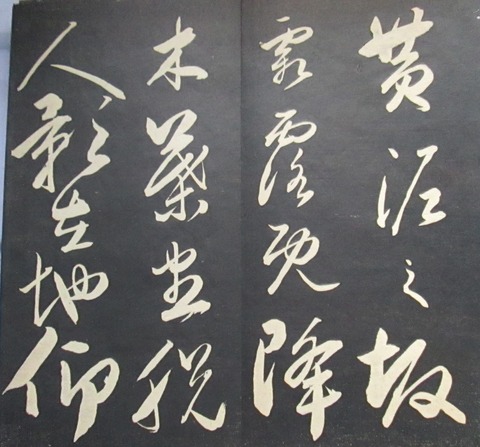 黄泥之坂
霜露既降
木葉盡脱
人影在地仰